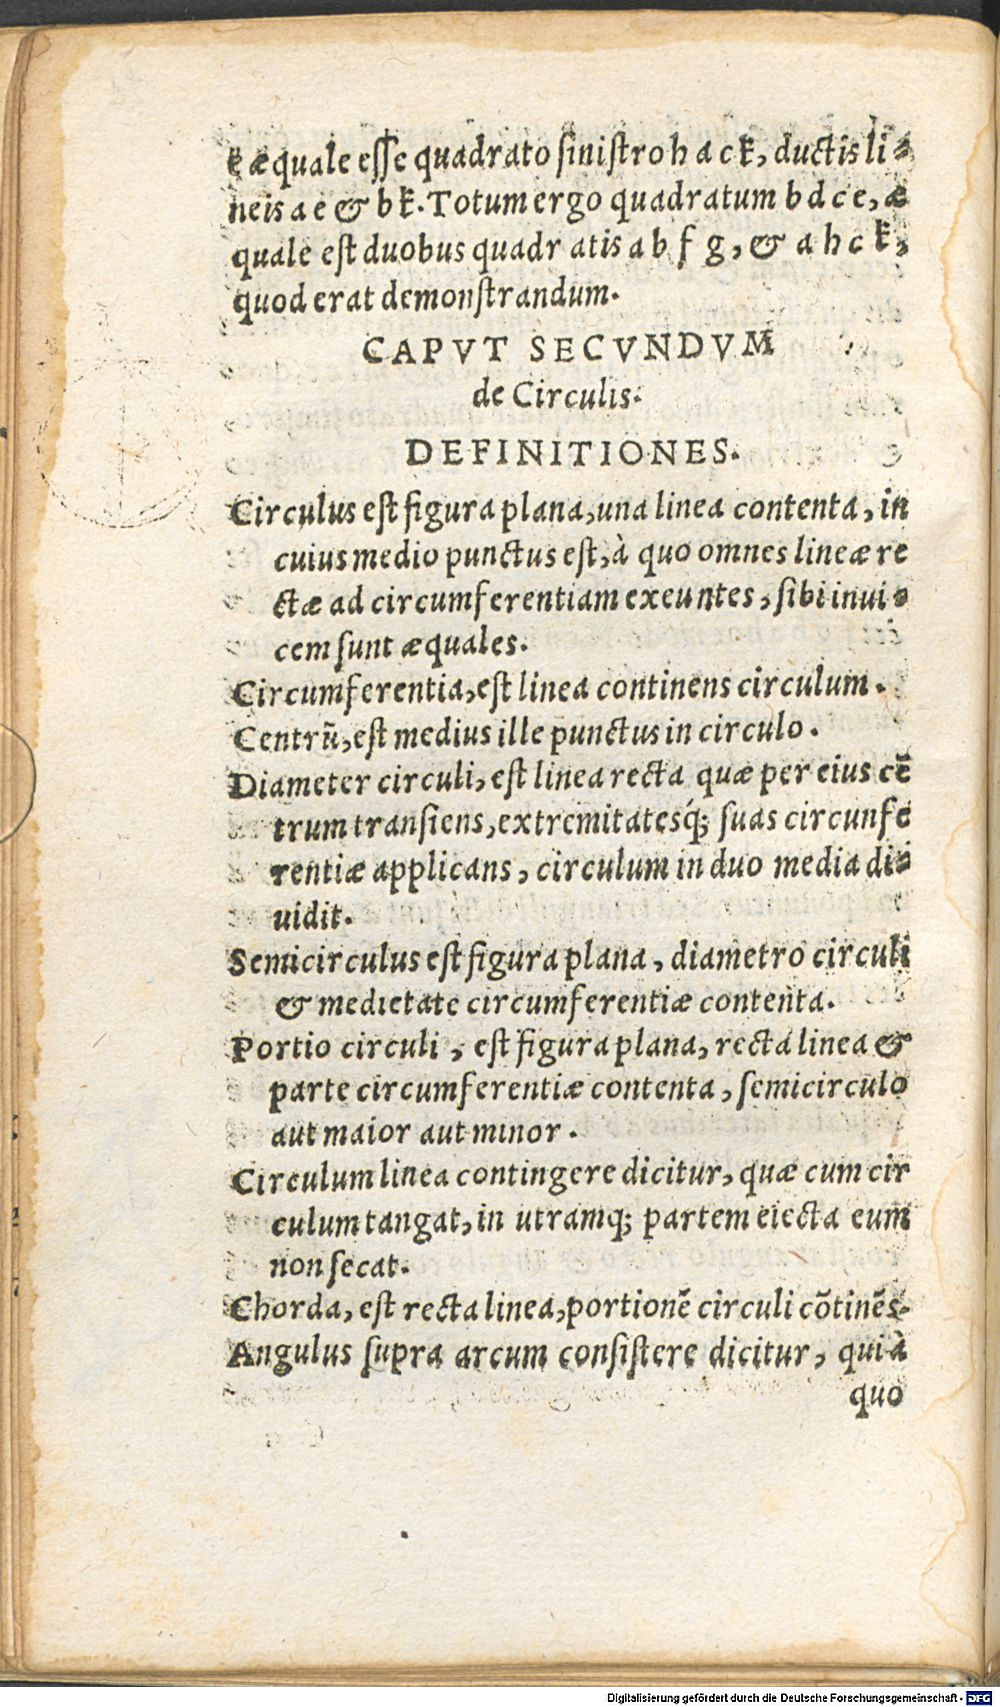 k æquale esse quadrato sinistro h a c k, ductis li-
neis a e & b k. Totum ergo quadratum b d c e, æ
quale est duobus quadr atis a b f g, & a h c k,
quod erat demonstrandum.
CAPVT SECVNDVM
de Circulis.
DEFINITIONES.
Circulus est figura plana, una linea contenta, in
cuius medio punctus est, à quo omnes lineæ re
ctæ ad circumferentiam exeuntes, sibi inui-
cem sunt æquales.
Circumferentia, est linea continens circulum.
Centrũ, est medius ille punctus in circulo.
Diameter circuli, est linea recta quæ per eius cẽ
trum transiens, extremitatesq́; suas circunfe
rentiæ applicans, circulum in duo media di-
uidit.
Semicirculus est figura plana, diametro circuli
& medietate circumferentiæ contenta.
Portio circuli, est figura plana, recta linea &
parte circumferentiæ contenta, semicirculo
aut maior aut minor.
Circulum linea contingere dicitur, quæ cum cir
culum tangat, in utramq; partem eiecta eum
non secat.
Chorda, est recta linea, portionẽ circuli cõtinẽs.
Angulus supra arcum consistere dicitur, qui à
quo
Digitalisierung gefördert durch die Deutsche Forschungsgemeinschaft - DFG